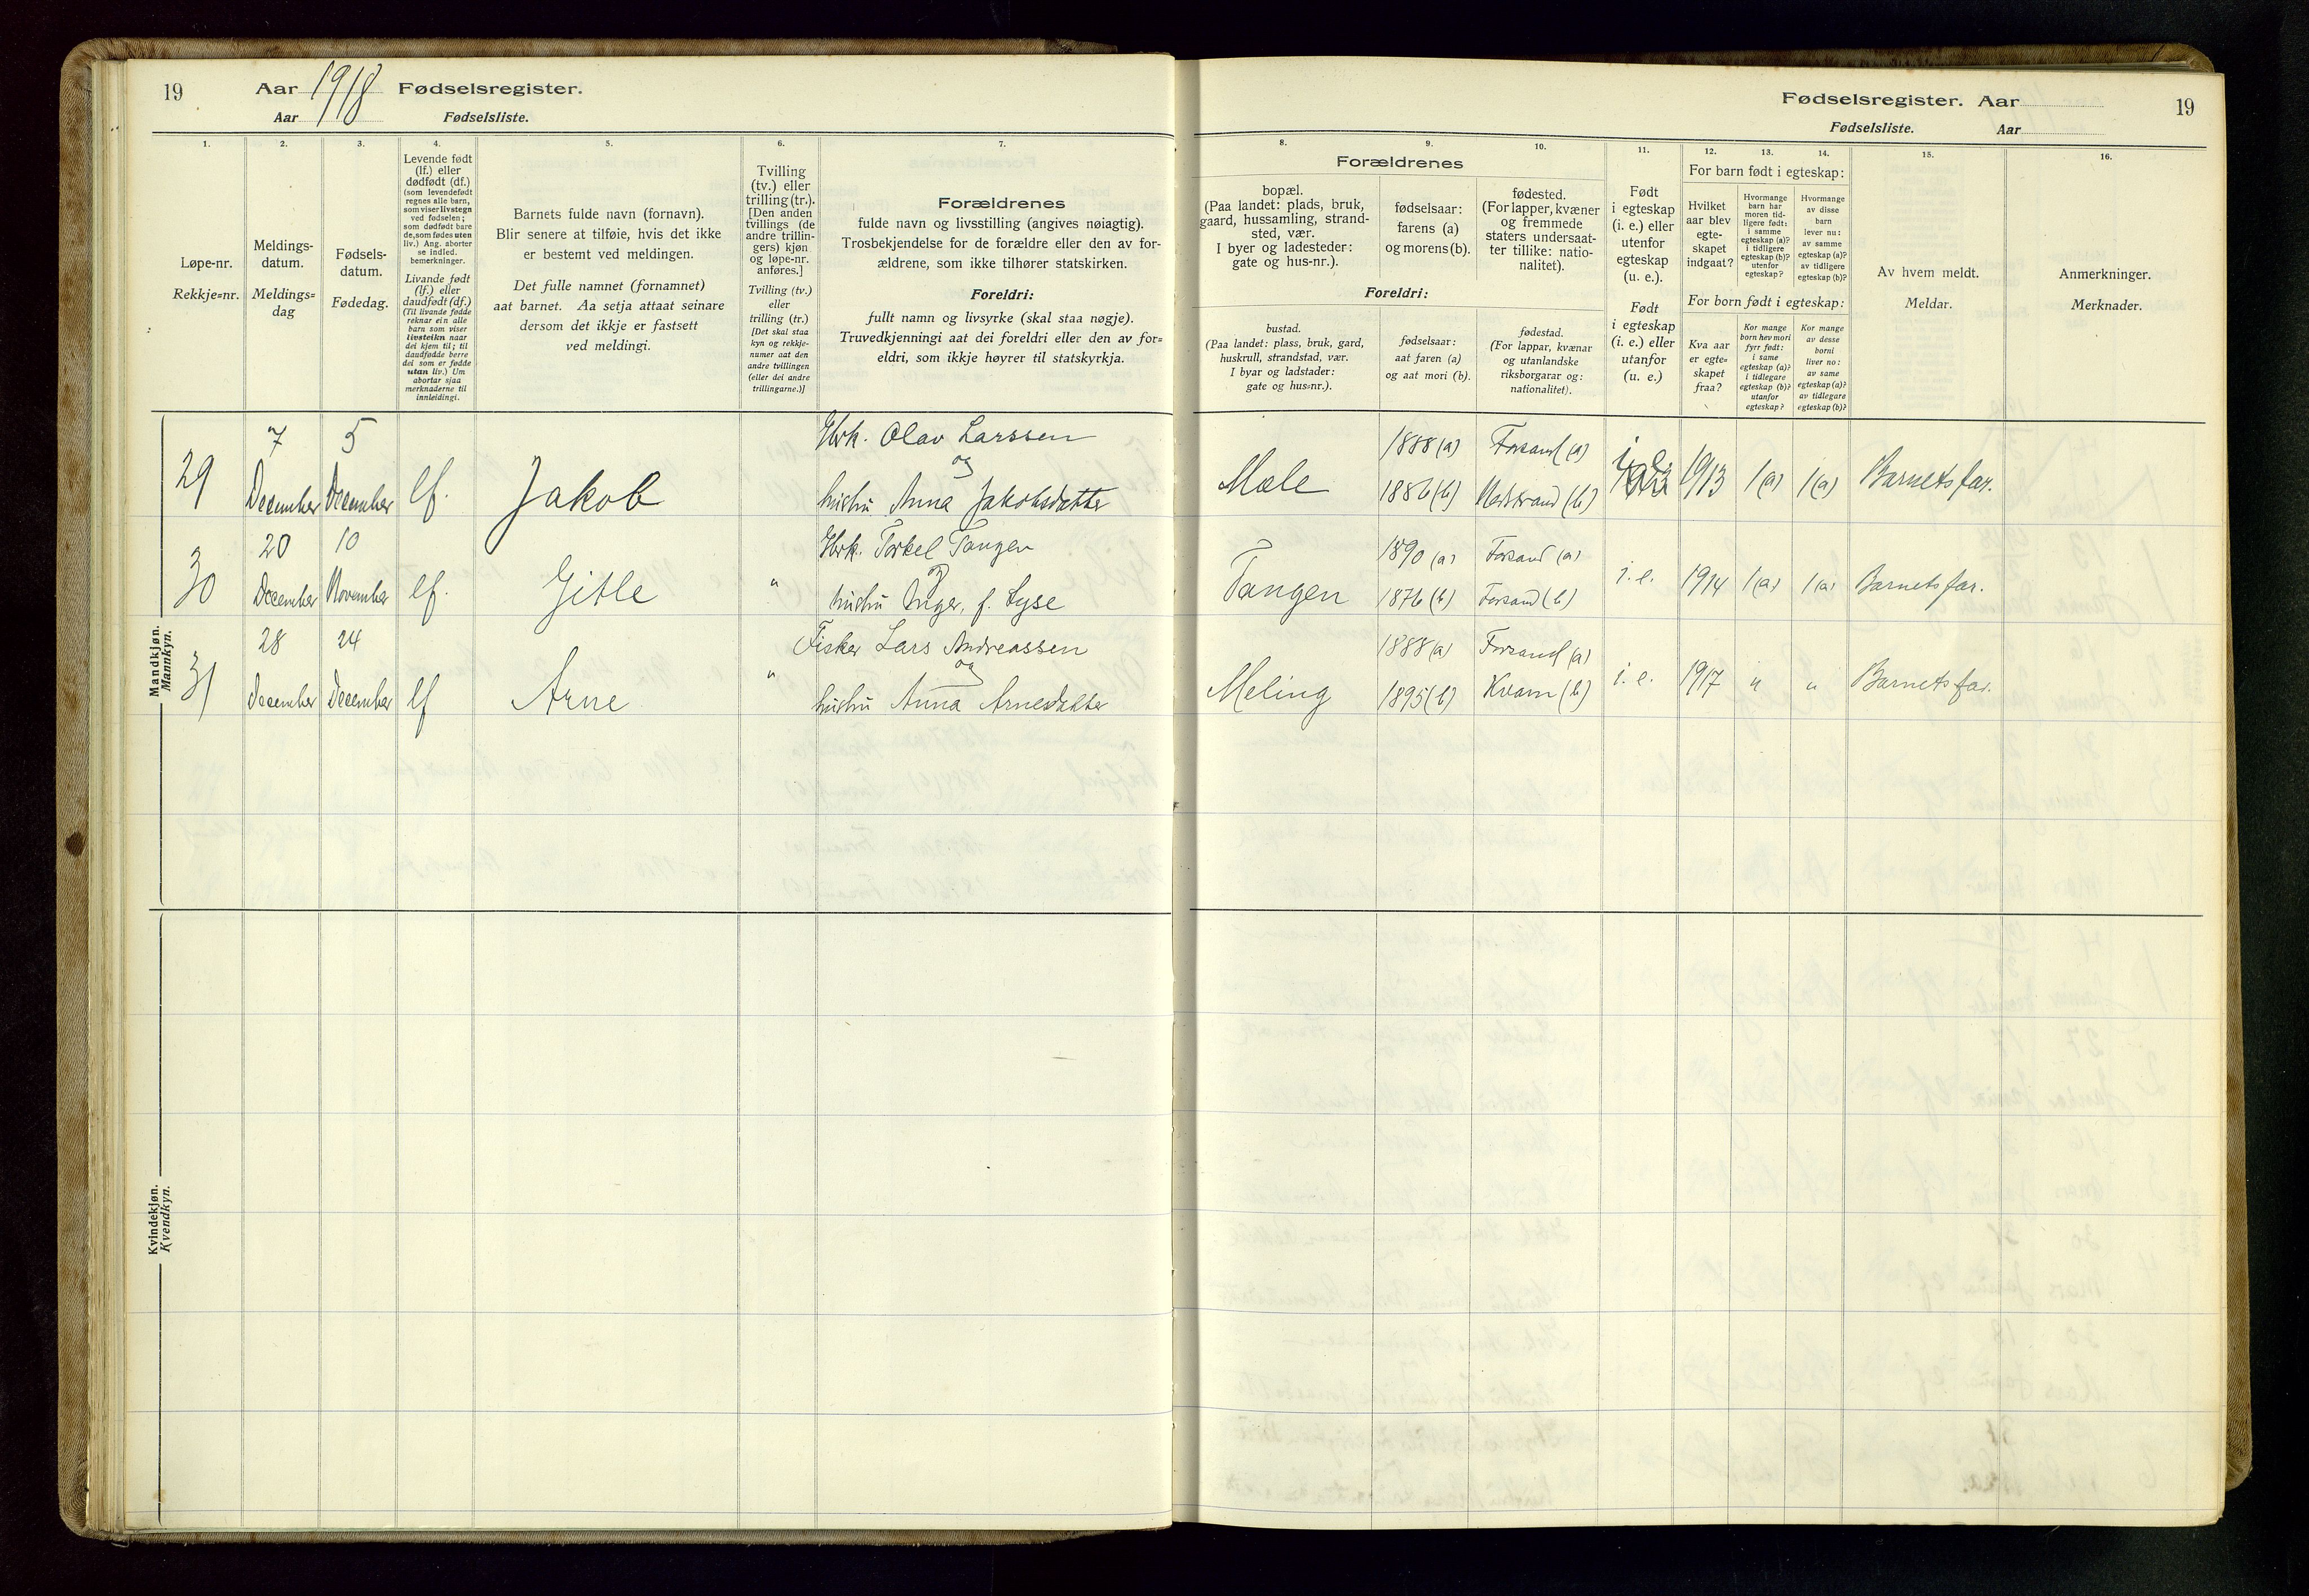 19
Aar 1918 Fødselsregister.
Aar Fødselsliste.
Fødselsregister. Aar
Fødselsliste. Aar
19
1.
Løpe-nr.
Rekkje=nr.
2.
Meldings-
datum.
Meldings=
dag
3.
Fødsels-
datum.
Fødedag.
4.
Levende født
(lf.) eller
dødfødt (df.)
(som levendefødt
regnes alle barn,
som viser livstegn
ved fødselen;
som dødfødt bare
de, som fødes uten
liv.) Ang. aborter
se indled.
bemerkninger.
Livande født
(lf.) eller
daudfødt (df.)
(Til livande fødde
reknar ein alle
barn som viser
livsteikn naar
dei kjem til; til
daudfødde berre
dei som er fødde
utan liv.) Um
abortar sjaa
merknaderne til
innleidingi.
5.
Barnets fulde navn (fornavn).
Blir senere at tilføie, hvis det ikke
er bestemt ved meldingen.
Det fulle namnet (fornamnet)
aat barnet. Aa setja attaat seinare
dersom det ikkje er fastsett
ved meldingi.
6.
Tvilling
(tv.) eller
trilling (tr.).
[Den anden
tvillings (de
andre trillin-
gers) kjøn
og løpe-nr.
anføres.]
Tvilling (tv.)
eller
trilling (tr.)
[Det skal staa
kyn og rekkje-
numer aat den
andre tvillingen
(eller dei andre
trillingarne.)]
7.
Forældrenes
fulde navn og livsstilling (angives nøiagtig).
Trosbekjendelse for de forældre eller den av for-
ældrene, som ikke tilhører statskirken.
Foreldri:
fullt namn og livsyrke (skal staa nøgje).
Truvedkjenningi aat dei foreldri eller den av for=
eldri, som ikkje høyrer til statskyrkja.
Forældrenes
8.
bopæl.
(Paa landet: plads, bruk,
gaard, hussamling, strand-
sted, vær.
I byer og ladesteder:
gate og hus-nr.).
9.
fødselsaar:
farens (a)
og morens (b).
10.
fødested.
(For lapper, kvæner
og fremmede
staters undersaat-
ter tillike: natio-
nalitet).
Foreldri:
bustad.
(Paa landet: plass, bruk, gard,
huskrull, strandstad, vær.
I byar og ladstader:
gate og hus=nr.).
fødselsaar:
aat faren (a)
og aat mori (b).
fødestad.
(For lappar, kvænar
og utanlandske
riksborgarar og:
nationalitet).
11.
Født
i egteskap
(i. e.) eller
utenfor
egteskap
(u. e.).
Født
i egteskap
(i. e.) eller
utanfor
(u. e.)
12.
13.
14.
For barn født i egteskap:
Hvilket
aar blev
egte-
skapet
indgaat?
Hvormange
barn har
moren tid-
ligere født:
i samme
egteskap (a)?
i tidligere
egteskap (b)?
utenfor
egteskap?
Hvormange
av disse
barn
lever nu:
av samme
egteskap (a)?
av tidligere
egteskap (b)?
For born født i egteskap:
Kva aar
er egte=
skapet
fraa?
Kor mange
born hev mori
fyrr født:
i same
egteskap (a)?
i tidlegare
egteskap (b)?
utanfor
egteskap?
Kor mange
av desse
borni
liver no:
av same
egteskap (a)?
av tidlegare
egteskap (b)?
15.
Av hvem meldt.
Meldar.
16.
Anmerkninger.
Merknader.
Mandkjøn.
Mannkyn.
29 7 December 5 December lf. Jakob Gbrk. Olav Larssen
og
hustru Anna Jakobsdatter
Mæle 1888 (a) Forsand (a)
1886 (b) Nedstrand (b)
i. e. 1913 1 (a) 1 (a) Barnets far.
30 20 December 10 November lf. Gitle " Gbrk. Torkel Tangen
og
hustru Inger, f. Lyse
Tangen 1890 (a) Forsand (a)
1876 (b) Forsand (b)
i. e. 1914 1 (a) 1 (a) Barnets far.
31 28 December 24 December lf Arne " Fisker Lars Andreassen
og
hustru Anna Arnesdatter
Meling 1888 (a) Forsand (a)
1895 (b) Kvam (b)
i. e. 1917 " " Barnets far.
Kvindekjøn.
Kvendkyn.